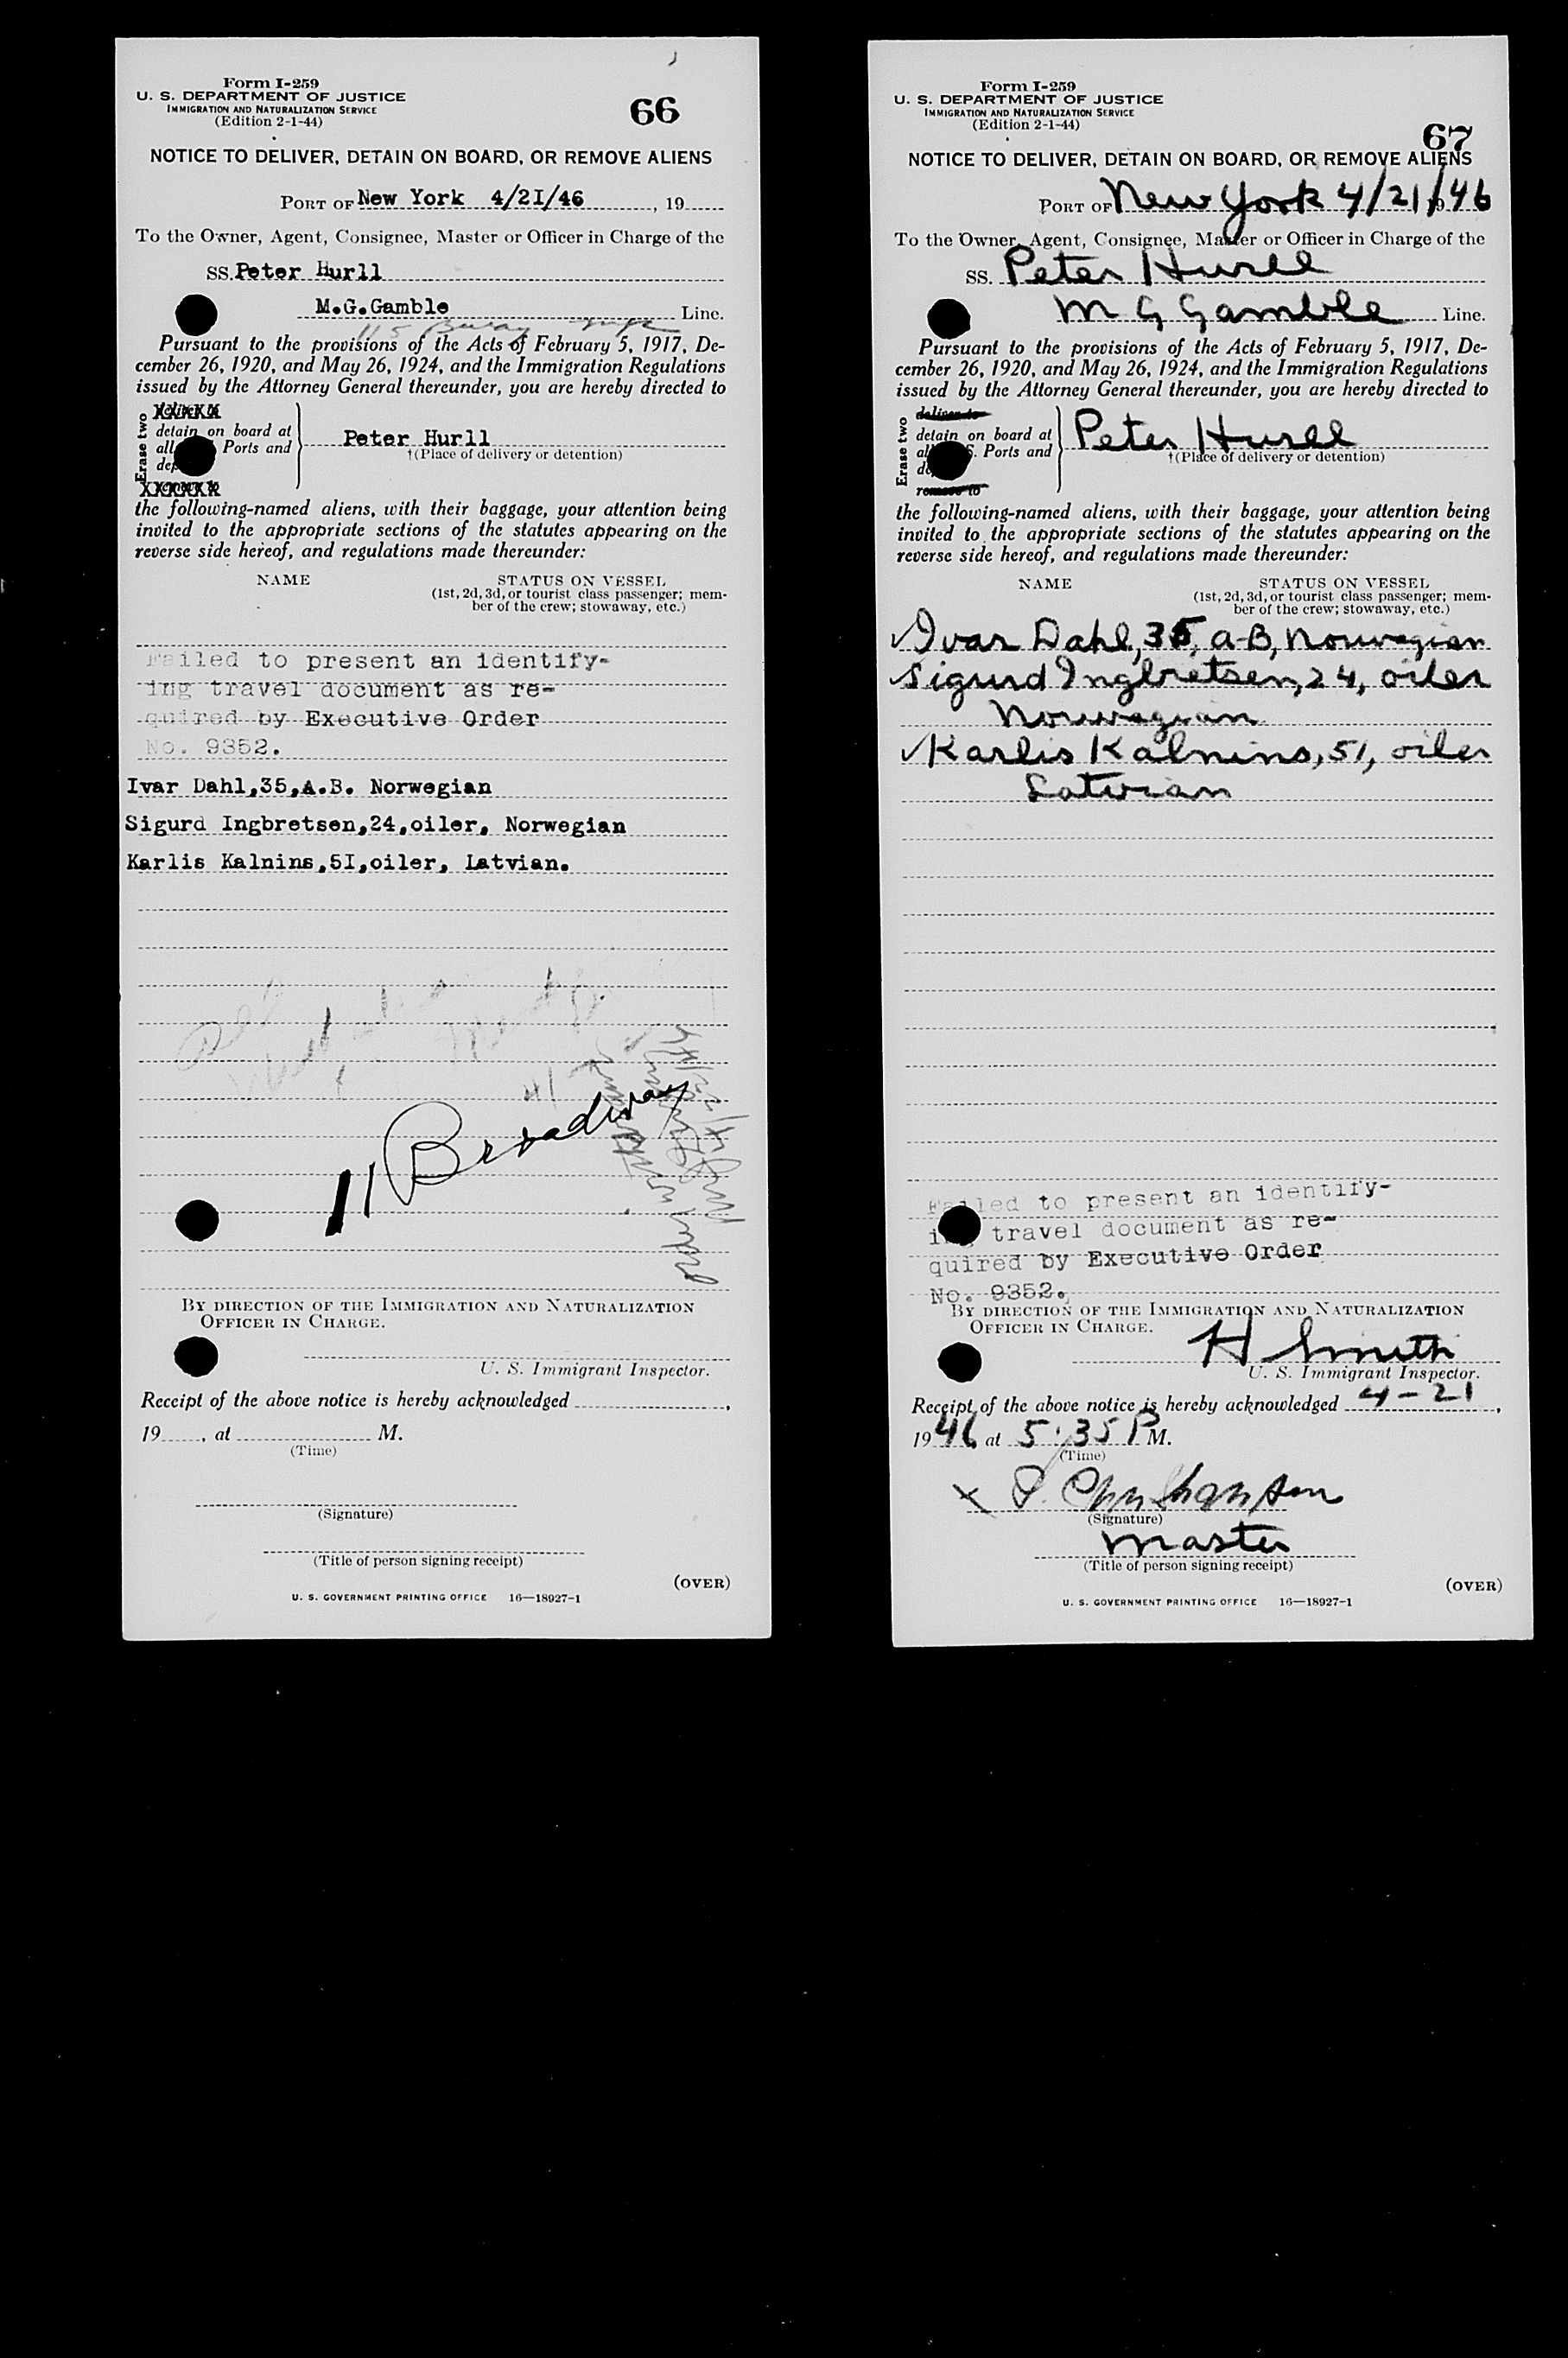 Form I-259
U. S. DEPARTMENT OF JUSTICE
IMMIGRATION AND NATURALIZATION SERVICE
(Edition 2-1-44)
66
NOTICE TO DELIVER, DETAIN ON BOARD, OR REMOVE ALIENS
PORT OF New York 4/2I/46, 19
To the Owner, Agent, Consignee, Master or Officer in Charge of the
SS. Peter Hurll
M.G.Gamble Line.
Pursuant to the provisions of the Acts of February 5, 1917, De-
cember 26, 1920, and May 26, 1924, and the Immigration Regulations
issued by the Attorney General thereunder, you are hereby directed to
Erase two
detain on board at
all Ports and
Peter Hurll
†(Place of delivery or detention)
the following-named aliens, with their baggage, your attention being
invited to the appropriate sections of the statutes appearing on the
reverse side hereof, and regulations made thereunder:
NAME STATUS ON VESSEL
(1st, 2d, 3d, or tourist class passenger; mem-
ber of the crew; stowaway, etc.)
Failed to present an identify-
ing travel document as re-
quired by Executive Order
No. 9352.
Ivar Dahl,35,A.B. Norwegian
Sigurd Ingbretsen,24,oiler, Norwegian
Karlis Kalnins,5I,oiler, Latvian.
11 Broadway
BY DIRECTION OF THE IMMIGRATION AND NATURALIZATION
OFFICER IN CHARGE.
U. S. Immigrant Inspector.
Receipt of the above notice is hereby acknowledged ,
19 , at M.
(Time)
(Signature)
(Title of person signing receipt)
(OVER)
U. S. GOVERNMENT PRINTING OFFICE 16—18927-1
Form I-259
U. S. DEPARTMENT OF JUSTICE
IMMIGRATION AND NATURALIZATION SERVICE
(Edition 2-1-44)
67
NOTICE TO DELIVER, DETAIN ON BOARD, OR REMOVE ALIENS
PORT OF New York 4/21/46
To the Owner, Agent, Consignee, Master or Officer in Charge of the
SS. Peter Hurll
M G Gamble Line.
Pursuant to the provisions of the Acts of February 5, 1917, De-
cember 26, 1920, and May 26, 1924, and the Immigration Regulations
issued by the Attorney General thereunder, you are hereby directed to
Erase two
deliver to
detain on board at
S. Ports and
remove to
Peter Hurll
†(Place of delivery or detention)
the following-named aliens, with their baggage, your attention being
invited to the appropriate sections of the statutes appearing on the
reverse side hereof, and regulations made thereunder:
NAME STATUS ON VESSEL
(1st, 2d, 3d, or tourist class passenger; mem-
ber of the crew; stowaway, etc.)
Ivar Dahl, 35, A-B, Norwegian
Sigurd Ingbretsen, 24, oiler
Norwegian
Karlis Kalnins, 51, oiler
Latvian
Failed to present an identify-
ing travel document as re-
quired by Executive Order
No. 9352.
BY DIRECTION OF THE IMMIGRATION AND NATURALIZATION
OFFICER IN CHARGE.
H Smith
U. S. Immigrant Inspector.
Receipt of the above notice is hereby acknowledged 4-21,
1946, at 5:35 P M.
(Time)
(Signature)
Master
(Title of person signing receipt)
(OVER)
U. S. GOVERNMENT PRINTING OFFICE 16—18927-1